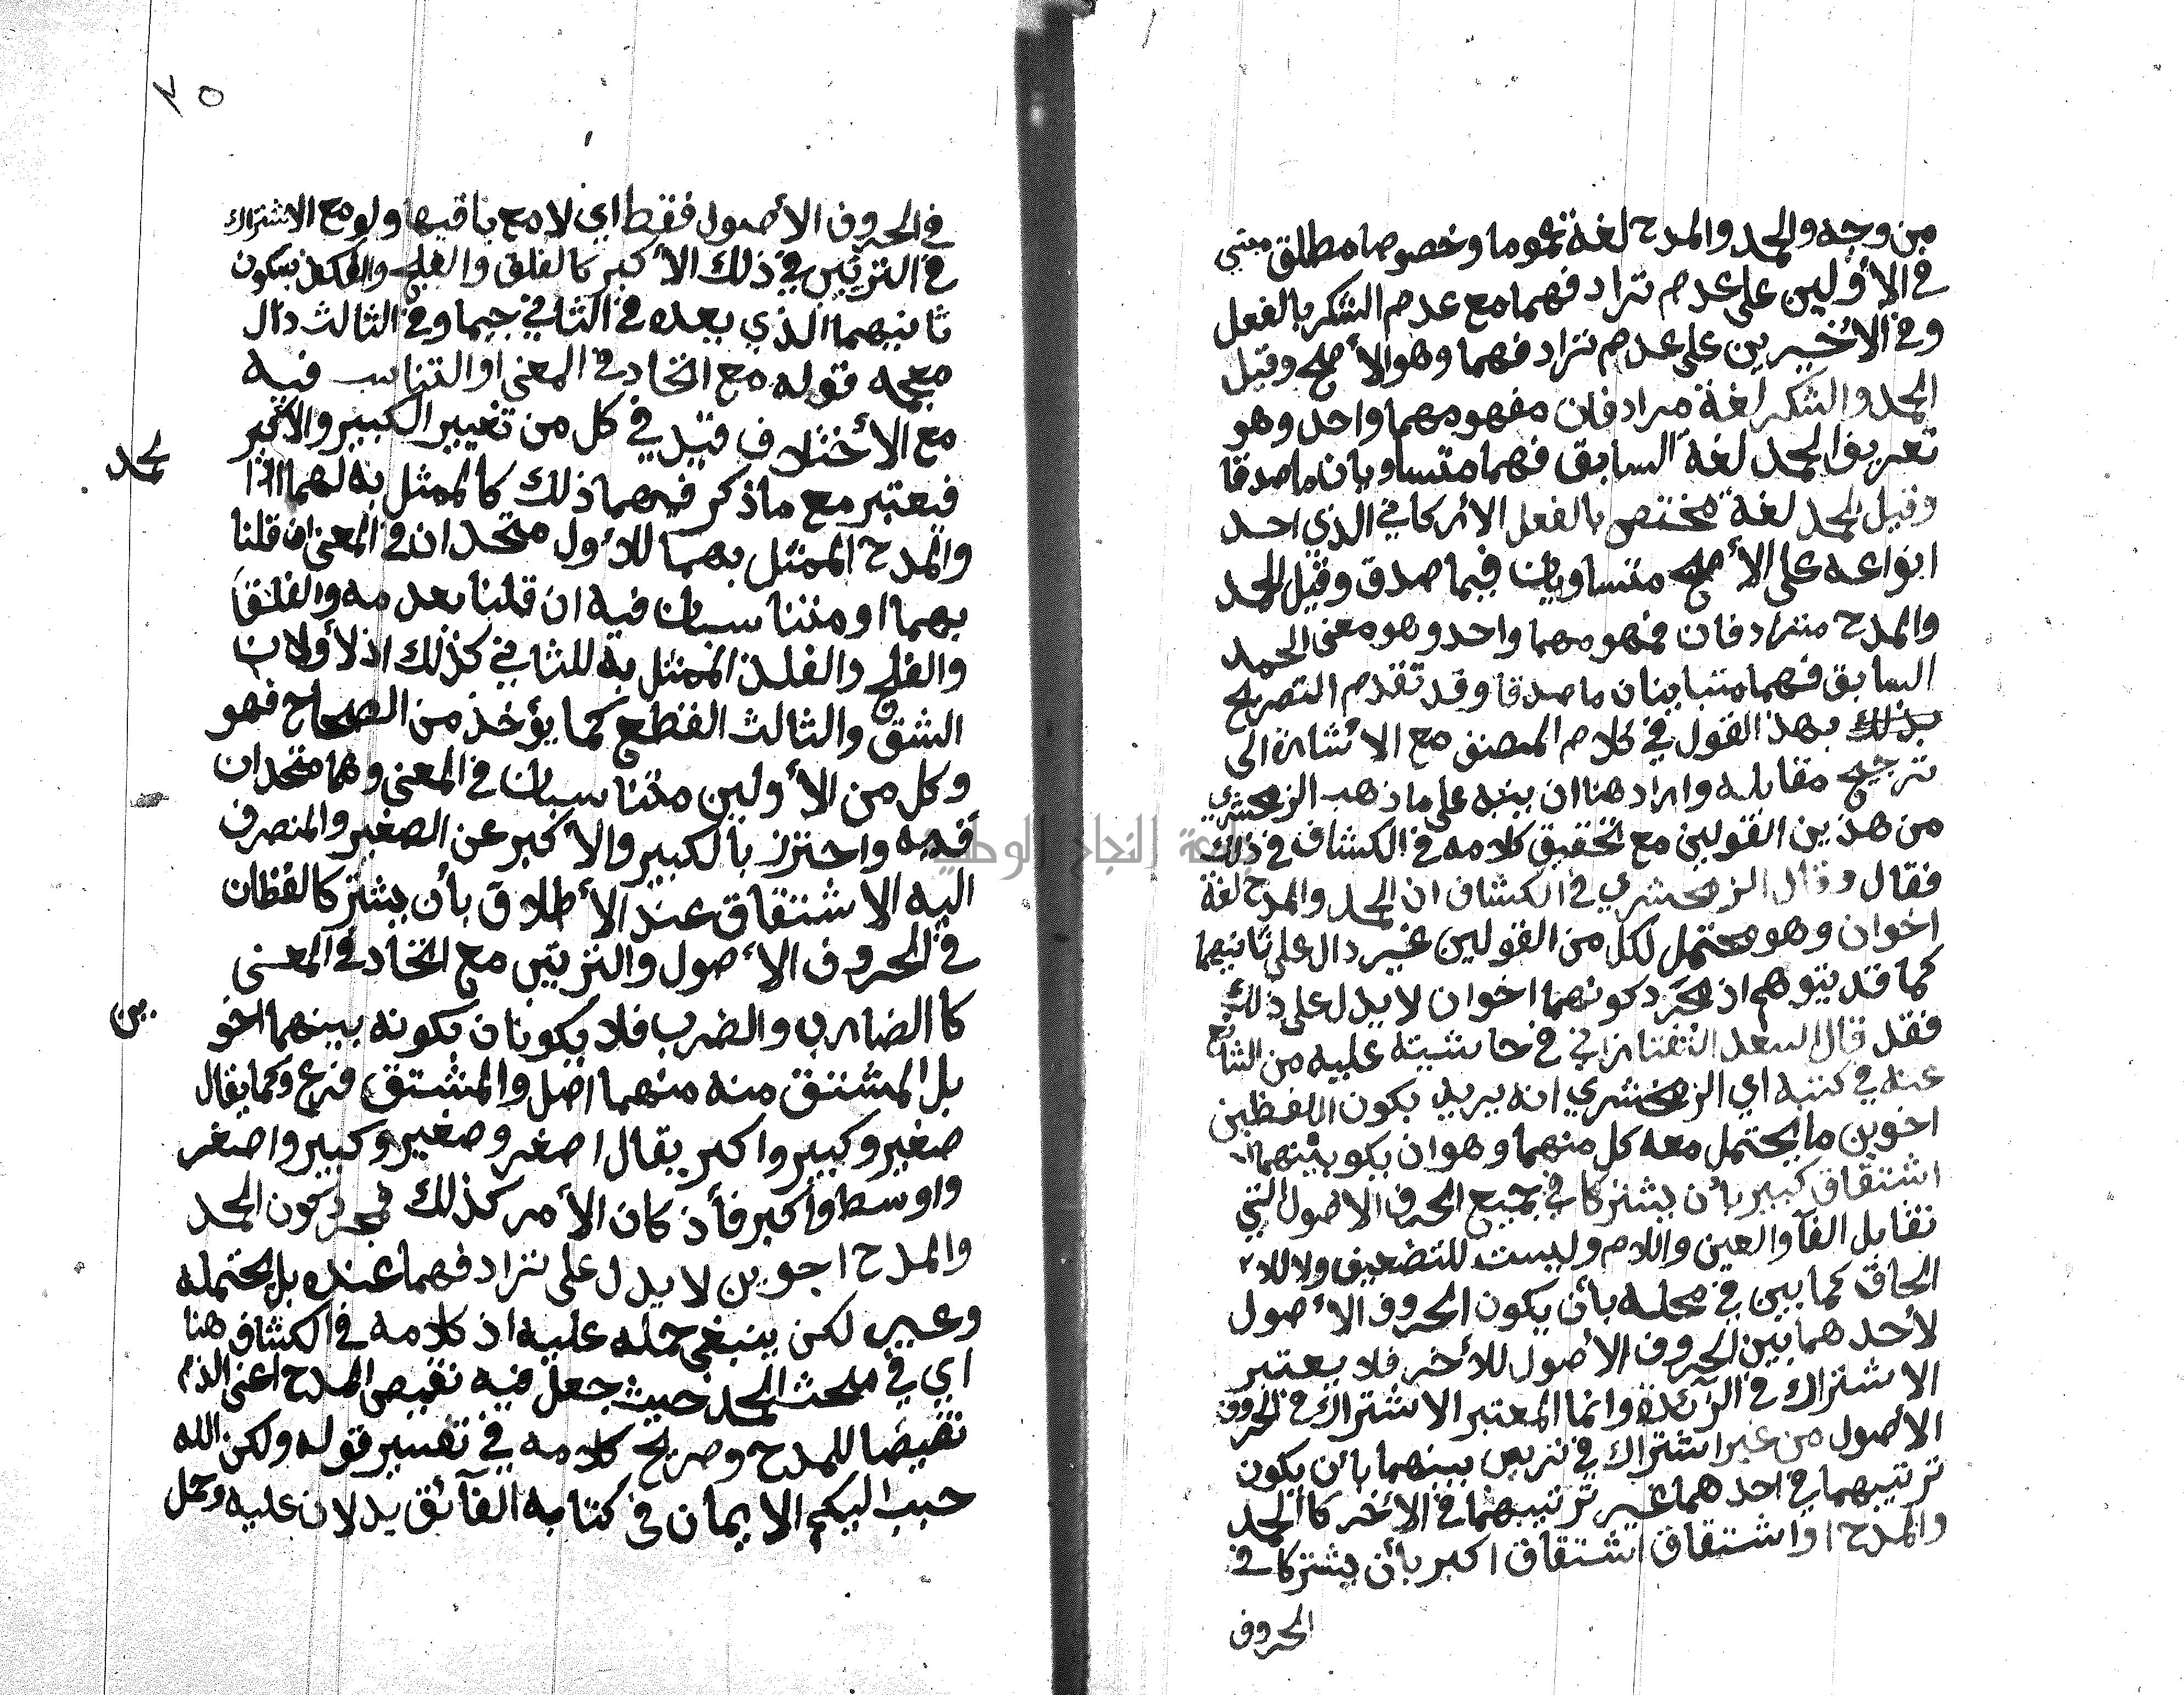 من وجه والحمد والمدح لغة عموما وخصوصا مطلق مبني
في الأولين على عدم ترادفهما مع عدم الشكر بالفعل
وفي الأخيرين على عدم ترادفهما وهو الأصح وقيل
الحمد والشكر لغة مرادفان مفهومهما واحد وهو
تعريف الحمد لغة السابق فهما متساويان ماصدقا
وقيل الحمد لغة مختص بالفعل الاركاني الذي احد
انواعه على الأصح متساويان فيما صدق وقيل الحمد
والمدح مترادفان فمفهومهما واحد وهو معنى الحمد
السابق فهما متباينان ماصدقا وقد تقدم التصريح
بذلك بهذ القول في كلام المصنف مع الاشارة الى
ترجيح مقابله واراد هنا ان ينبه على ما ذهب الزمخشري
من هذين القولين مع تحقيق كلامه في الكشاف في ذلك
فقال وقال الزمخشري في الكشاف ان الحمد والمدح لغة
اخوان وهو محتمل لكل من القولين غير دال على ثانيهما
كما قد يتوهم اذ مجرد كونهما اخوان لا يدل على ذلك
فقد قال السعد التفتازاني في حاشيته عليه من الشائع
عنه في كتبه اي الزمخشري انه يريد بكون اللفظين
اخوين ما يحتمل معه كل منهما وهو ان يكو بينهما
اشتقاق كبير بأن يشتركا في جميع الحرف الاصول التي
تقابل الفآ والعين واللام وليست للتضعيف ولا للا
الحاق كما بين في محله بأن يكون الحروف الأصول
لأحدهما بين الحروف الأصول للأخر فلا يعتبر
الاشتراك في الزآئدة وانما المعتبر الاشتراك في الحروف
الأصول من غير اشتراك في ترتيب بينهما بأن يكون
ترتيبهما في احدهما غير ترتيبهما في الأخر كاالحمد
والمدح او اشتقاق اشتقاق اكبر بأن يشتركا في
الحروف
٢٥
في الحروف الأصول فقط اي لا مع باقيها ولو مع الاشتراك
في الترتيب في ذلك الأكبر كالفلق والفلج والفلذ بسكون
ثانيهما الذي بعده في الثاني جيما وفي الثالث ذال
معجمه قوله مع اتحاد في المعنى او التناسب فيه
مع الأختلاف قيد في كل من تغيير الكبير والأكبر
فيعتبر مع ماذكر فيهما ذلك كالممثل به لهما اذا
لحمد
والمدح الممثل بهما للأول متحدان في المعنى ان قلنا
بهما او متناسبان فيه ان قلنا بعدمه والفلق
والفلج والفلذ الممثل به للثاني كذلك اذ لأولان
الشق والثالث القطع كما يؤخذ من الصحاح فهو
وكل من الأولين متناسبان في المعنى وهما متحدان
فيه واحترز بالكبير والأكبر عن الصغير والمنصرف
اليه الاشتقاق عند الأطلاق بأن يشتركا لفظان
في الحروف الأصول والترتيب مع اتحاد في المعنى
كا الضارب والضرب فلا يكونان بكونه بينهما اخو
ين
بل المشتق منه منهما اصل والمشتق فرع وكما يقال
صغير وكبير واكبر يقال اصغر وصغير وكبير واصغر
واوسط وأكبر فأذ كان الأمر كذلك فمجرد كون الحمد
والمدح اخوين لا يدل على ترادفهما عنده بل يحتمله
وغيره لكن ينبغي حمله عليه اذ كلامه في الكشاف هنا
اي في مبحث الحمد حيث جعل فيه نقيض المدح اعنى الذم
نقيضا للمدح وصريح كلامه في تفسير قوله ولكن الله
حبب اليكم الايمان في كتابه الفآئق يدلان عليه وحمل
جامعة النجاح الوطنية